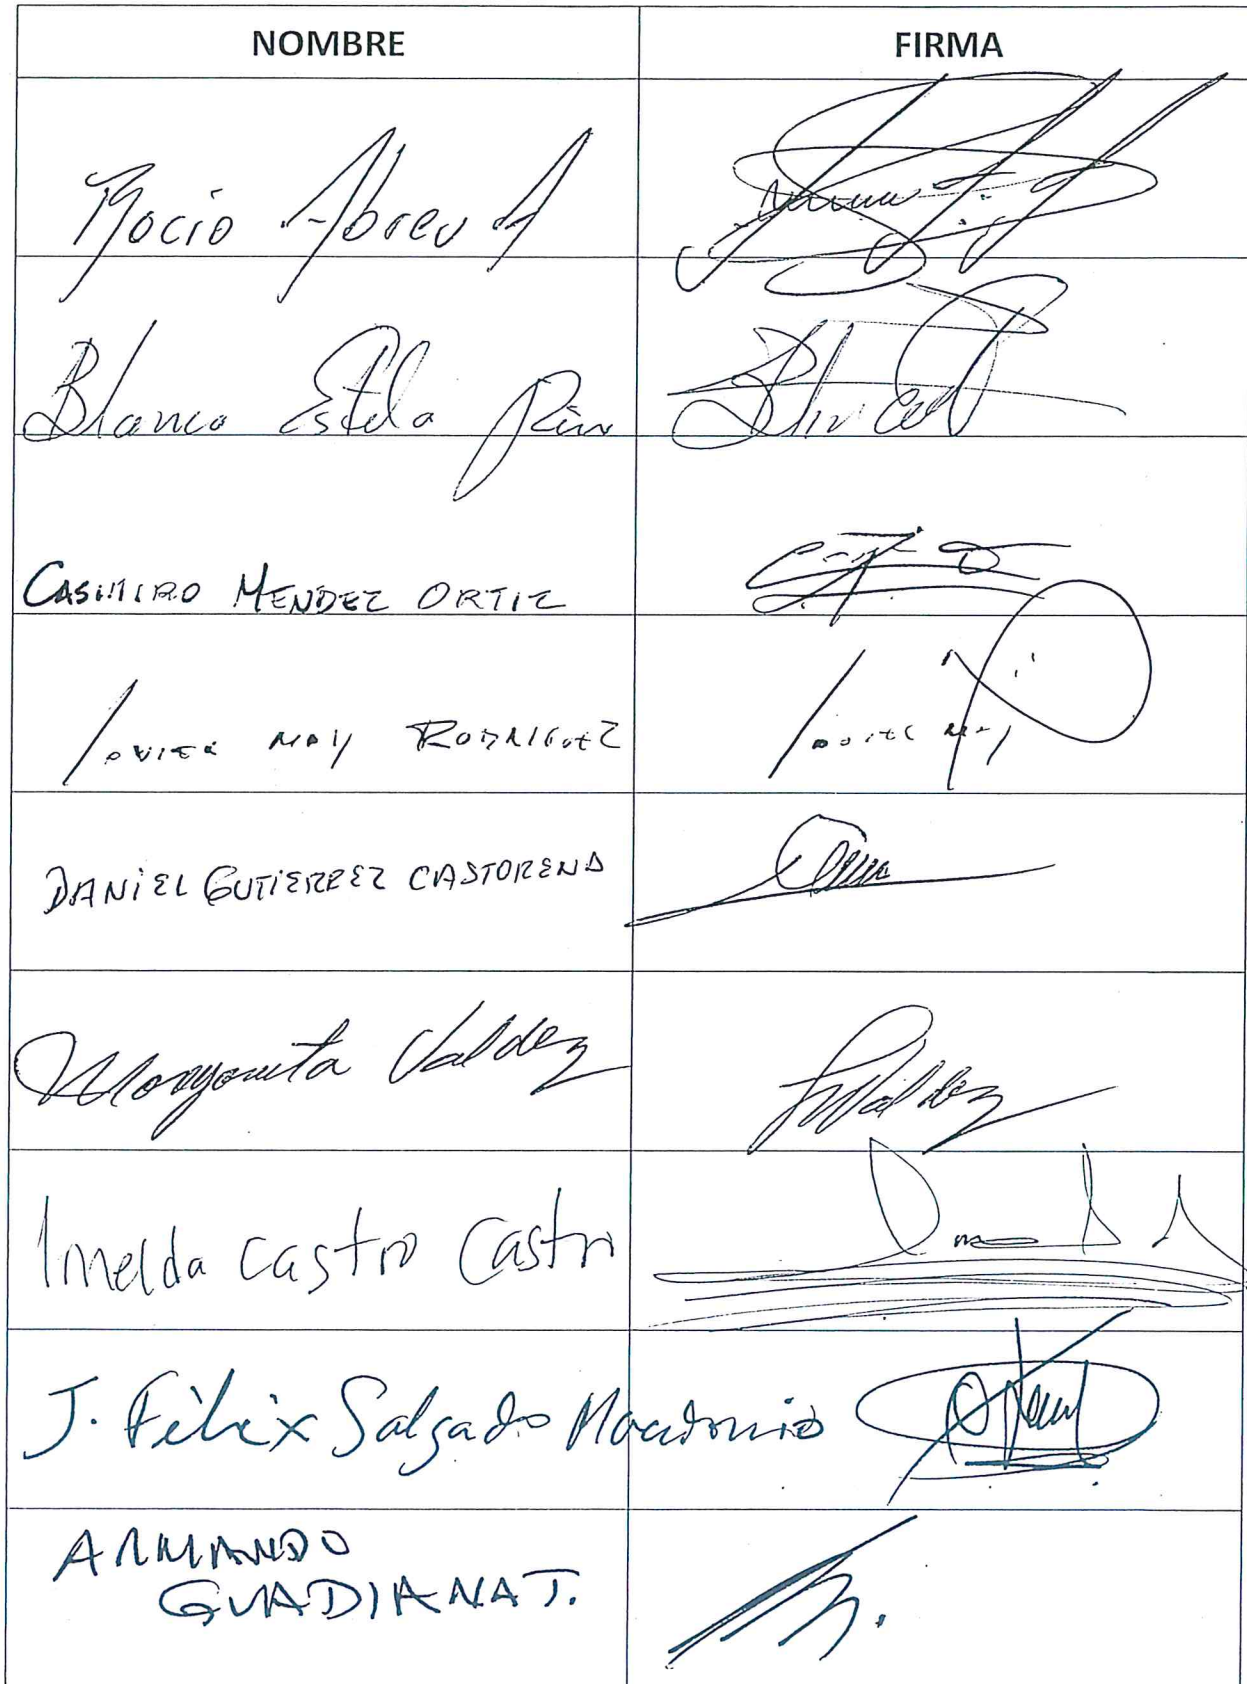 NOMBRE FIRMA
Rocio Abreu A
Blanca Estela Piña
CASIMIRO MENDEZ ORTIZ
Javier May RODRIGUEZ Javier May
DANIEL GUTIERREZ CASTORENA
Margarita Valdez MValdez
Imelda Castro Castro
J. Félix Salgado Macedonio
ARMANDO
GUADIANA T.